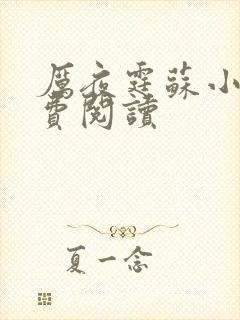 厲夜霆蘇小
費閱讀
夏一念